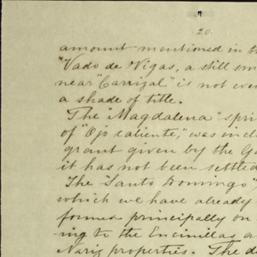 20.
amount mentioned in th
"Vado de Negas, a still sm
near "Carrizal" is not eve
a shade of title.
The "Magdalena" spri
of "Ojo caliente," was incl
grant given by the Go
it has not been settled
The "Santo Domingo"
which we have already
former principally on
ing to the Encinillas a
Nariz properties. The d